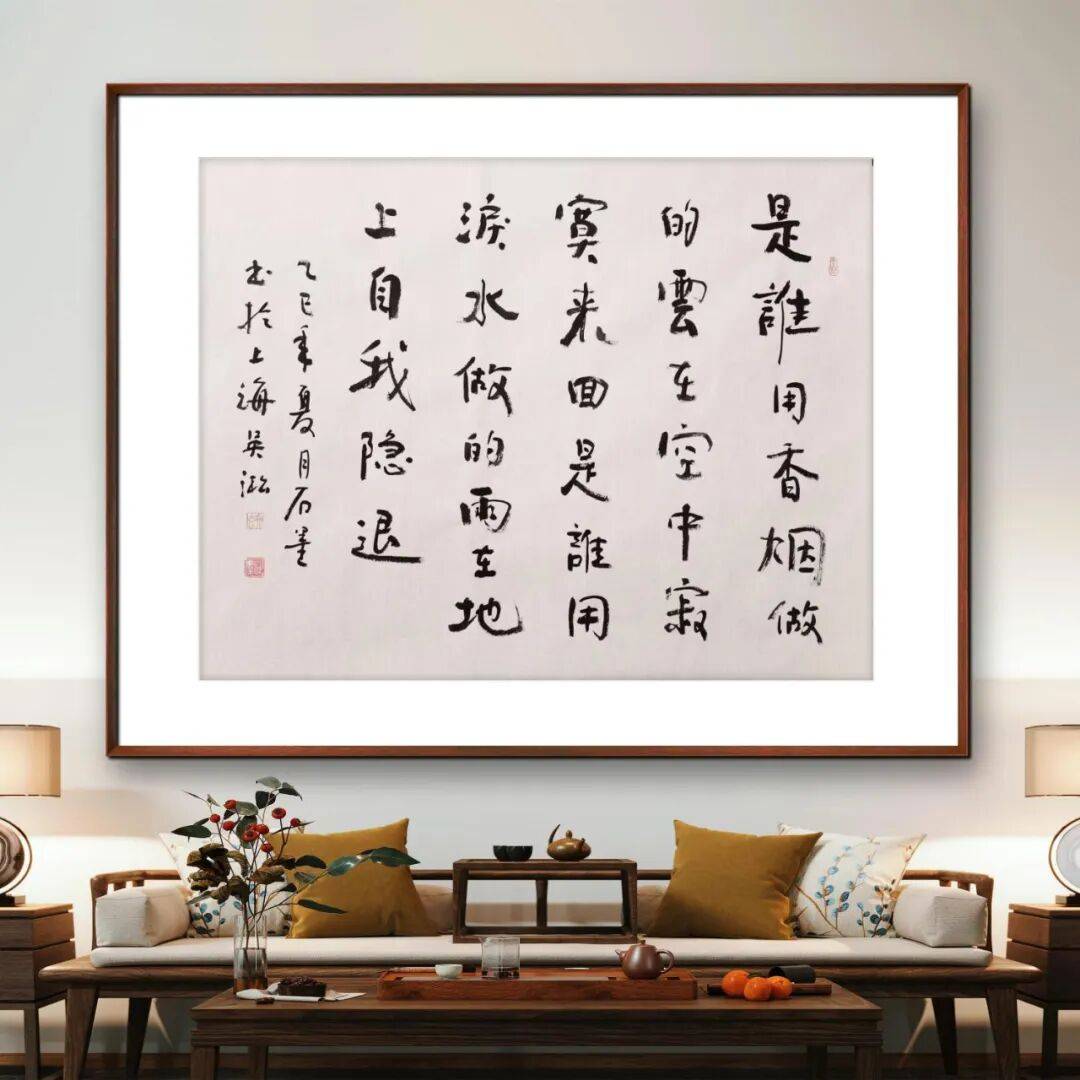 是誰用香烟做
的雲在空中寂
寞来回是誰用
淚水做的雨在地
上自我隐退
乙巳年夏月石墨
书於上海吴淞